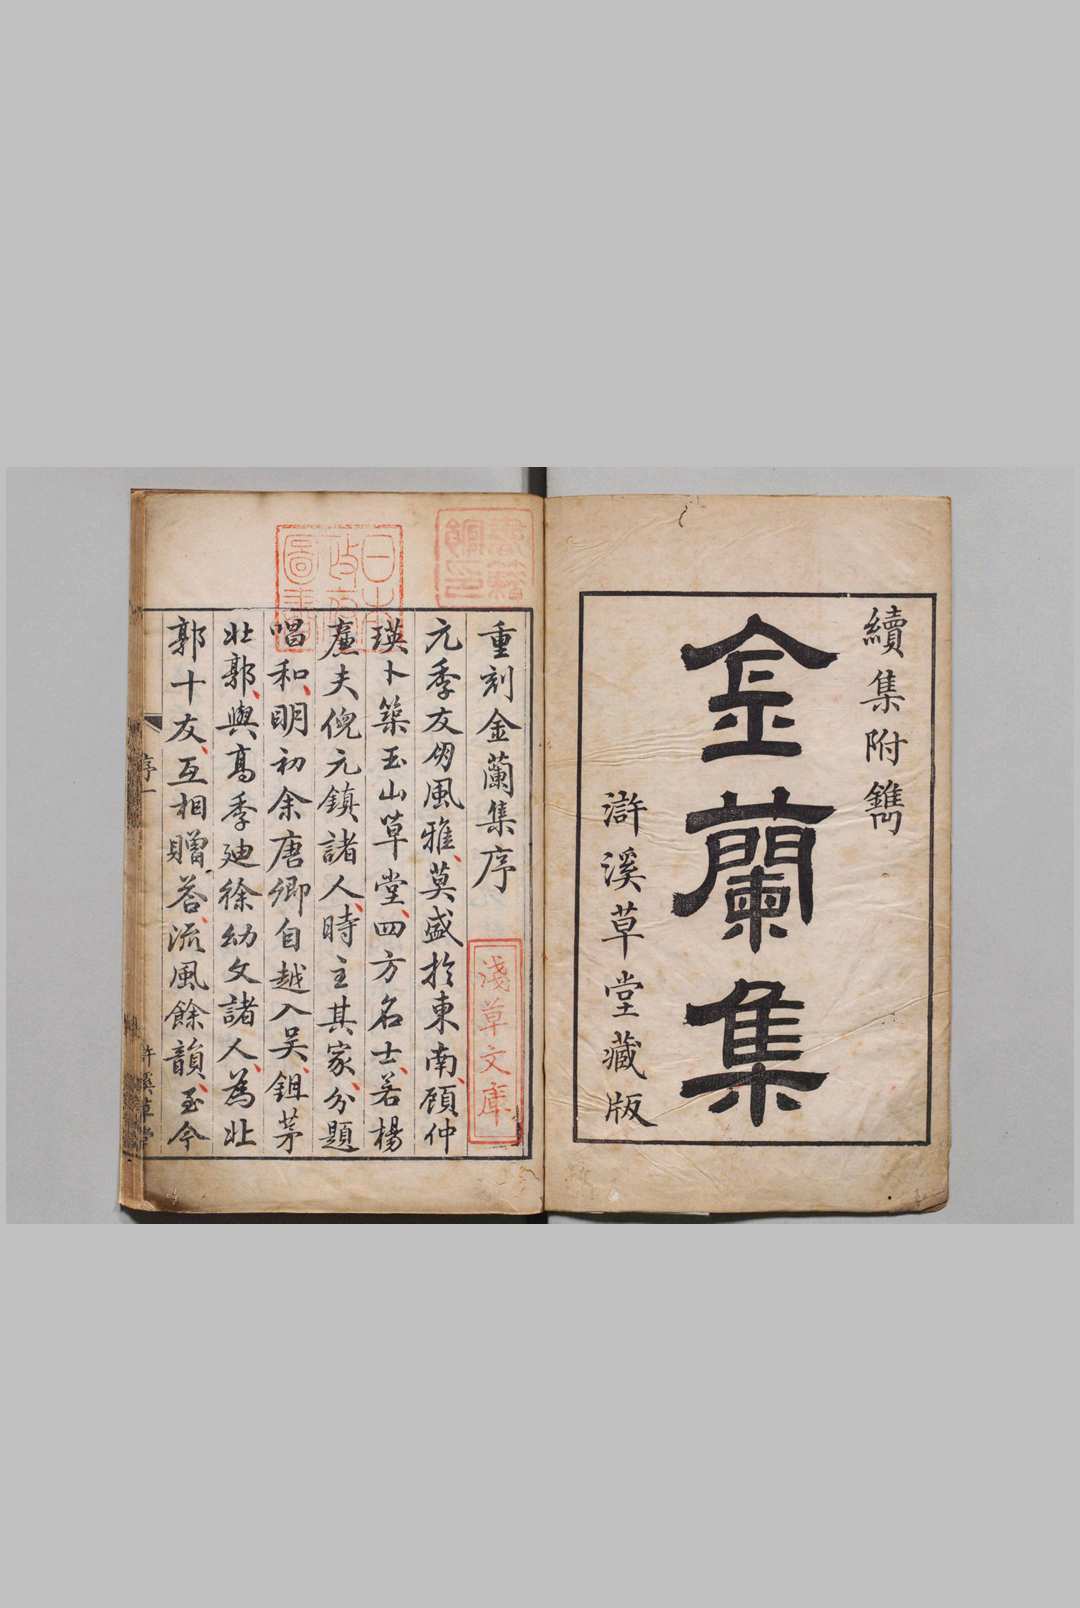 續集附鐫
金蘭集
滸溪草堂藏版
重刻金蘭集序
元季友朋風雅莫盛於東南顧仲
瑛卜築玉山草堂四方名士若楊
廉夫倪元鎮諸人時主其家分題
唱和明初余唐卿自越入吳鉏茅
北郭與高季廸徐幼文諸人為北
郭十友互相贈荅流風餘韻至今
序一
滸溪草堂
淺草文庫
日本政府圖書
書籍館印